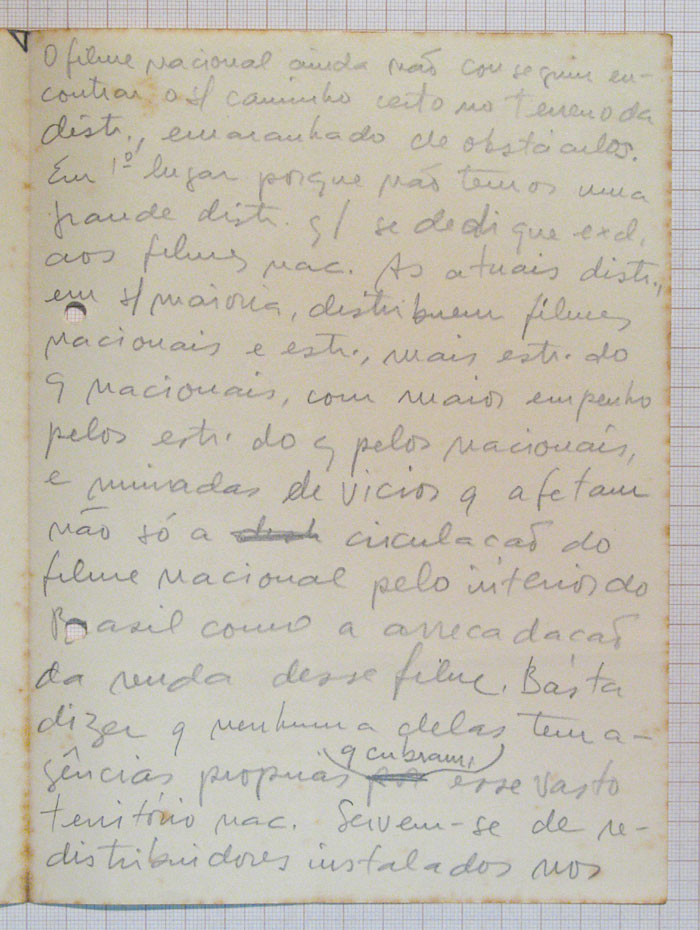 O filme nacional ainda não conseguiu en-
contrar o s/ caminho certo no terreno da
distr., emaranhado de obstáculos.
Em 1º lugar porque não temos uma
grande distr. q/ se dedique excl.
aos filmes nac. As atuais distr.,
em s/ maioria, distribuem filmes
nacionais e estr., mais estr. do
q nacionais, com maior empenho
pelos estr. do q pelos nacionais,
e minadas de vicios q afetam
não só a distr circulacaõ do
filme nacional pelo interior do
Brasil como a arrecadacaõ
da renda desse filme. Basta
dizer q nenhuma delas tem a-
gências proprias q cubram esse vasto
território nac. Servem-se de re-
distribuidores instalados nos